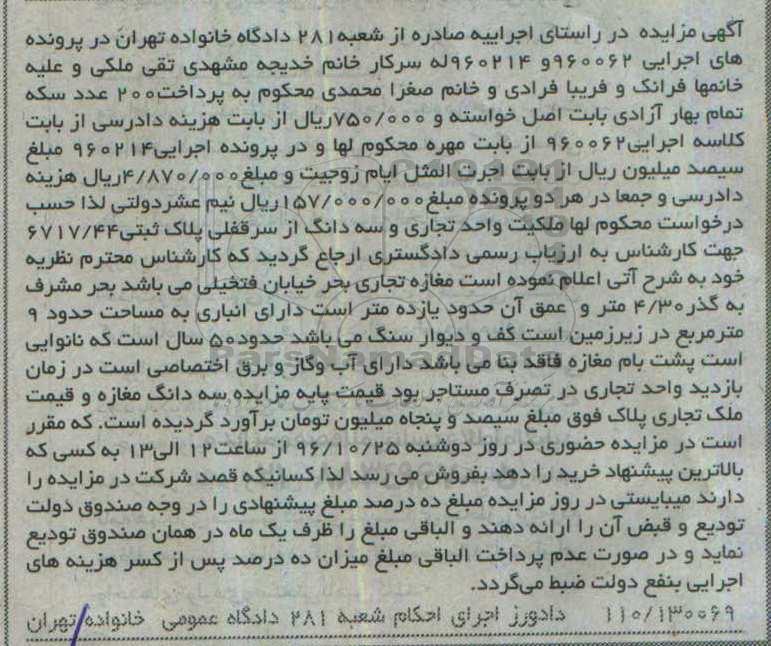 آگهی مزایده در راستای اجراییه صادره از شعبه۲۸۱ دادگاه خانواده تهران در پرونده
های اجرایی ۹۶۰۰۶۲و ۹۶۰۲۱۴له سرکار خانم خدیجه مشهدی تقی ملکی و علیه
خانمها فرانک و فریبا فرادی و خانم صغرا محمدی محکوم به پرداخت۲۰۰ عدد سکه
تمام بهار آزادی بابت اصل خواسته و ۷۵۰/۰۰۰ریال از بابت هزینه دادرسی از بابت
کلاسه اجرایی۹۶۰۰۶۲ از بابت مهره محکوم لها و در پرونده اجرایی۹۶۰۲۱۴ مبلغ
سیصد میلیون ریال از بابت اجرت المثل ایام زوجیت و مبلغ۴/۸۷۰/۰۰۰ریال هزینه
دادرسی و جمعا در هر دو پرونده مبلغ۱۵۷/۰۰۰/۰۰۰ریال نیم عشردولتی لذا حسب
درخواست محکوم لها ملکیت واحد تجاری و سه دانگ از سرقفلی پلاک ثبتی۶۷۱۷/۴۴
جهت کارشناس به ارزیاب رسمی دادگستری ارجاع گردید که کارشناس محترم نظریه
خود به شرح آتی اعلام نموده است مغازه تجاری بحر خیابان فتخیلی می باشد بحر مشرف
به گذر۴/۳۰ متر و عمق آن حدود یازده متر است دارای انباری به مساحت حدود ۹
مترمربع در زیرزمین است کف و دیوار سنگ می باشد حدود۵۰ سال است که نانوایی
است پشت بام مغازه فاقد بنا می باشد دارای آب وگاز و برق اختصاصی است در زمان
بازدید واحد تجاری در تصرف مستاجر بود قیمت پایه مزایده سه دانگ مغازه و قیمت
ملک تجاری پلاک فوق مبلغ سیصد و پنجاه میلیون تومان برآورد گردیده است. که مقرر
است در مزایده حضوری در روز دوشنبه ۹۶/۱۰/۲۵ از ساعت۱۲ الی۱۳ به کسی که
بالاترین پیشنهاد خرید را دهد بفروش می رسد لذا کسانیکه قصد شرکت در مزایده را
دارند میبایستی در روز مزایده مبلغ ده درصد مبلغ پیشنهادی را در وجه صندوق دولت
تودیع و قبض آن را ارائه دهند و الباقی مبلغ را ظرف یک ماه در همان صندوق تودیع
نماید و در صورت عدم پرداخت الباقی مبلغ میزان ده درصد پس از کسر هزینه های
اجرایی بنفع دولت ضبط می‌گردد.
۱۱۰/۱۳۰۰۶۹ دادورز اجرای احکام شعبه ۲۸۱ دادگاه عمومی خانواده تهران
ParsNamadData